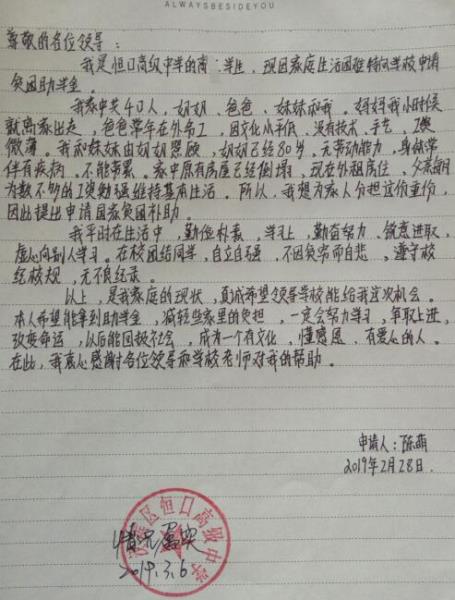 ALWAYSBESIDEYOU
尊敬的各位领导：
我是恒口高级中学的高一学生，现因家庭生活困难特向学校申请
贫困助学金。
我家中共4口人，奶奶、爸爸、妹妹和我。妈妈我小时候
就离家出走，爸爸常年在外务工，因文化水平低，没有技术、手艺，工资
微薄。我和妹妹由奶奶照顾，奶奶已经80岁，无劳动能力，身体常
伴有疾病，不能劳累。家中原有房屋已经倒塌，现在外租房住，父亲每月
为数不多的工资勉强维持基本生活。所以，我想为家人分担这份重任，
因此提出申请国家贫困补助。
我平时在生活中，勤俭朴素，学习上，勤奋努力、锐意进取，
虚心向别人学习。在校团结同学，自立自强，不因贫穷而自悲，遵守校
纪校规，无不良纪录。
以上，是我家庭的现状，真诚希望领导学校能给我这次机会。
本人希望能拿到助学金，减轻些家里的负担，一定会努力学习，争取上进，
改变命运，以后能回报社会，成为一个有文化，懂感恩，有爱心的人。
在此，我衷心感谢各位领导和学校老师对我的帮助。
申请人：陈萌
2019年2月28日.
区恒口高级中学
情况属实
2019.3.6